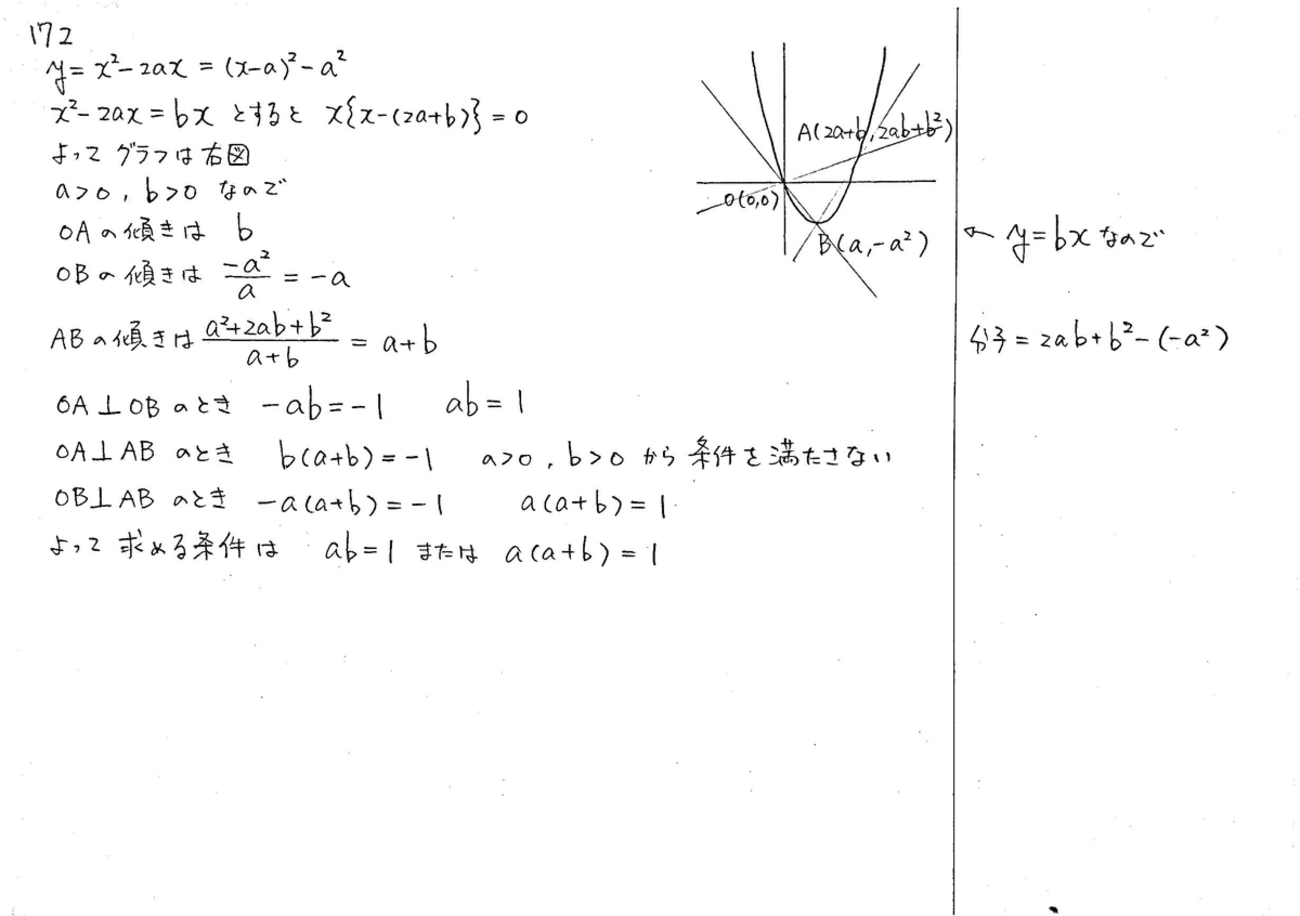 172
y = x² - 2ax = (x-a)² - a²
x² - 2ax = bx とすると x{x-(2a+b)} = 0
よって グラフは右図
a>0, b>0 なので
OAの傾きは b
OBの傾きは -a²/a = -a
ABの傾きは (a²+2ab+b²)/(a+b) = a+b
OA⊥OB のとき -ab = -1 ab = 1
OA⊥AB のとき b(a+b) = -1 a>0, b>0 から 条件を満たさない
OB⊥AB のとき -a(a+b) = -1 a(a+b) = 1
よって 求める条件は ab = 1 または a(a+b) = 1
A(2a+b, 2ab+b²)
O(0,0)
B(a, -a²)
← y = bx なので
分子 = 2ab+b²-(-a²)